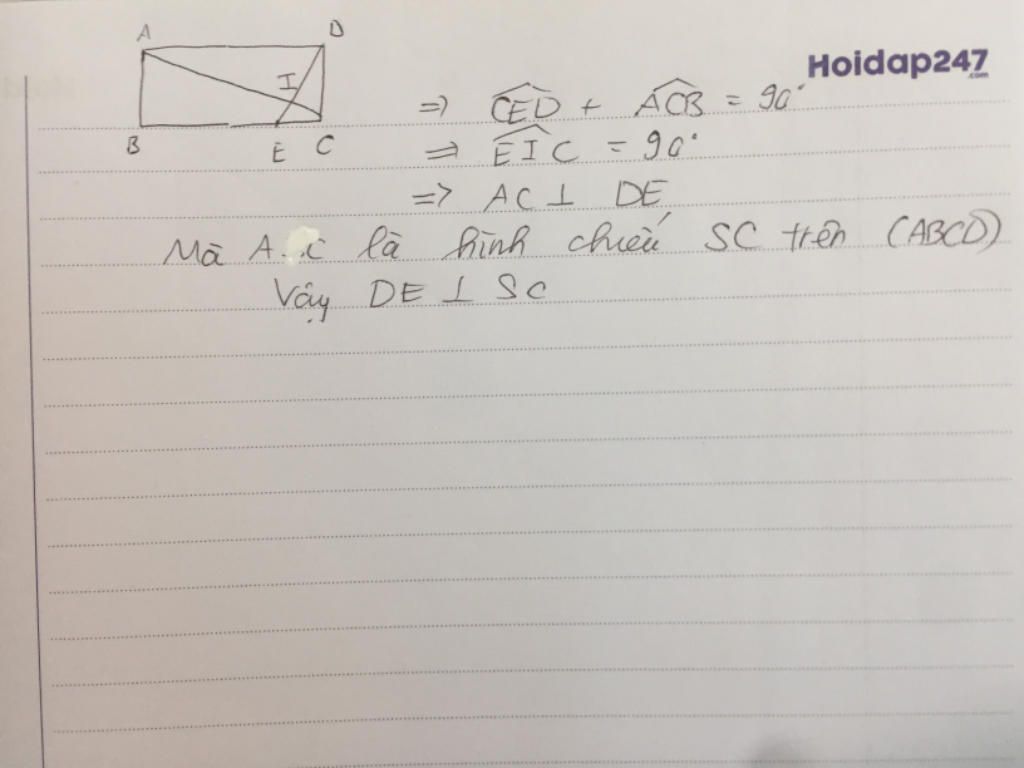 A D
Hoidap247
.com
I
=> \widehat{CED} + \widehat{ACB} = 90°
B E C
=> \widehat{EIC} = 90°
=> AC ⊥ DE
Mà AC là hình chiếu SC trên (ABCD)
Vậy DE ⊥ SC